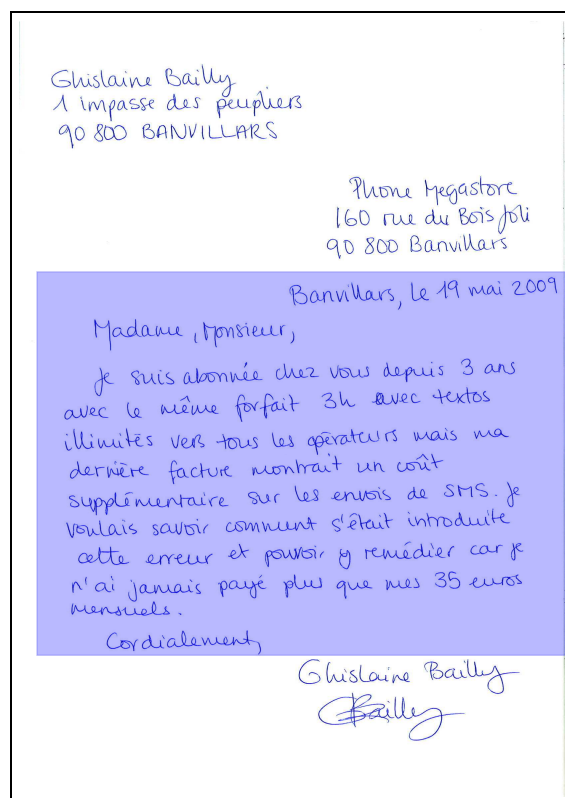 Ghislaine Bailly
1 impasse des peupliers
90 800 BANVILLARS
Phone Megastore
160 rue du Bois Joli
90 800 Banvillars
Banvillars, le 19 mai 2009
Madame, Monsieur,
Je suis abonnée chez vous depuis 3 ans
avec le même forfait 3h avec textos
illimités vers tous les opérateurs mais ma
dernière facture montrait un coût
supplémentaire sur les envois de SMS. Je
voulais savoir comment s'était introduite
cette erreur et pouvoir y remédier car je
n'ai jamais payé plus que mes 35 euros
mensuels.
Cordialement,
Ghislaine Bailly
GBailly